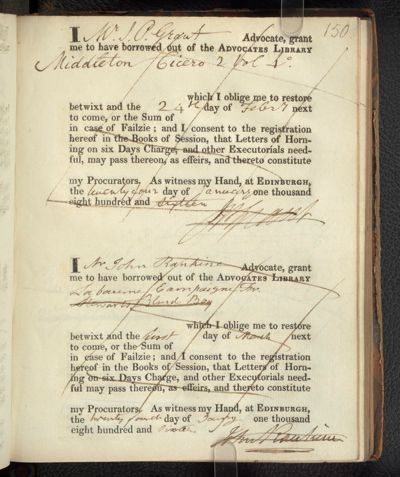 150
I Mr J. P. Grant Advocate, grant
me to have borrowed out of the ADVOCATES LIBRARY
Middleton Cicero 2 Vol 4o.
which I oblige me to restore
betwixt and the 24th day of Febry next
to come, or the Sum of
in case of Failzie; and I consent to the registration
hereof in the Books of Session, that Letters of Horn-
ing on six Days Charge, and other Executorials need-
ful, may pass thereon, as effeirs, and thereto constitute
my Procurators. As witness my Hand, at EDINBURGH,
the twenty four day of January one thousand
eight hundred and sixteen
I Mr John Rankine Advocate, grant
me to have borrowed out of the ADVOCATES LIBRARY
Labaume Campaigne
which I oblige me to restore
betwixt and the first day of March next
to come, or the Sum of
in case of Failzie; and I consent to the registration
hereof in the Books of Session, that Letters of Horn-
ing on six Days Charge, and other Executorials need-
ful may pass thereon, as effeirs, and thereto constitute
my Procurators. As witness my Hand, at EDINBURGH,
the twenty fourth day of Jany one thousand
eight hundred and sixteen
John Rankine